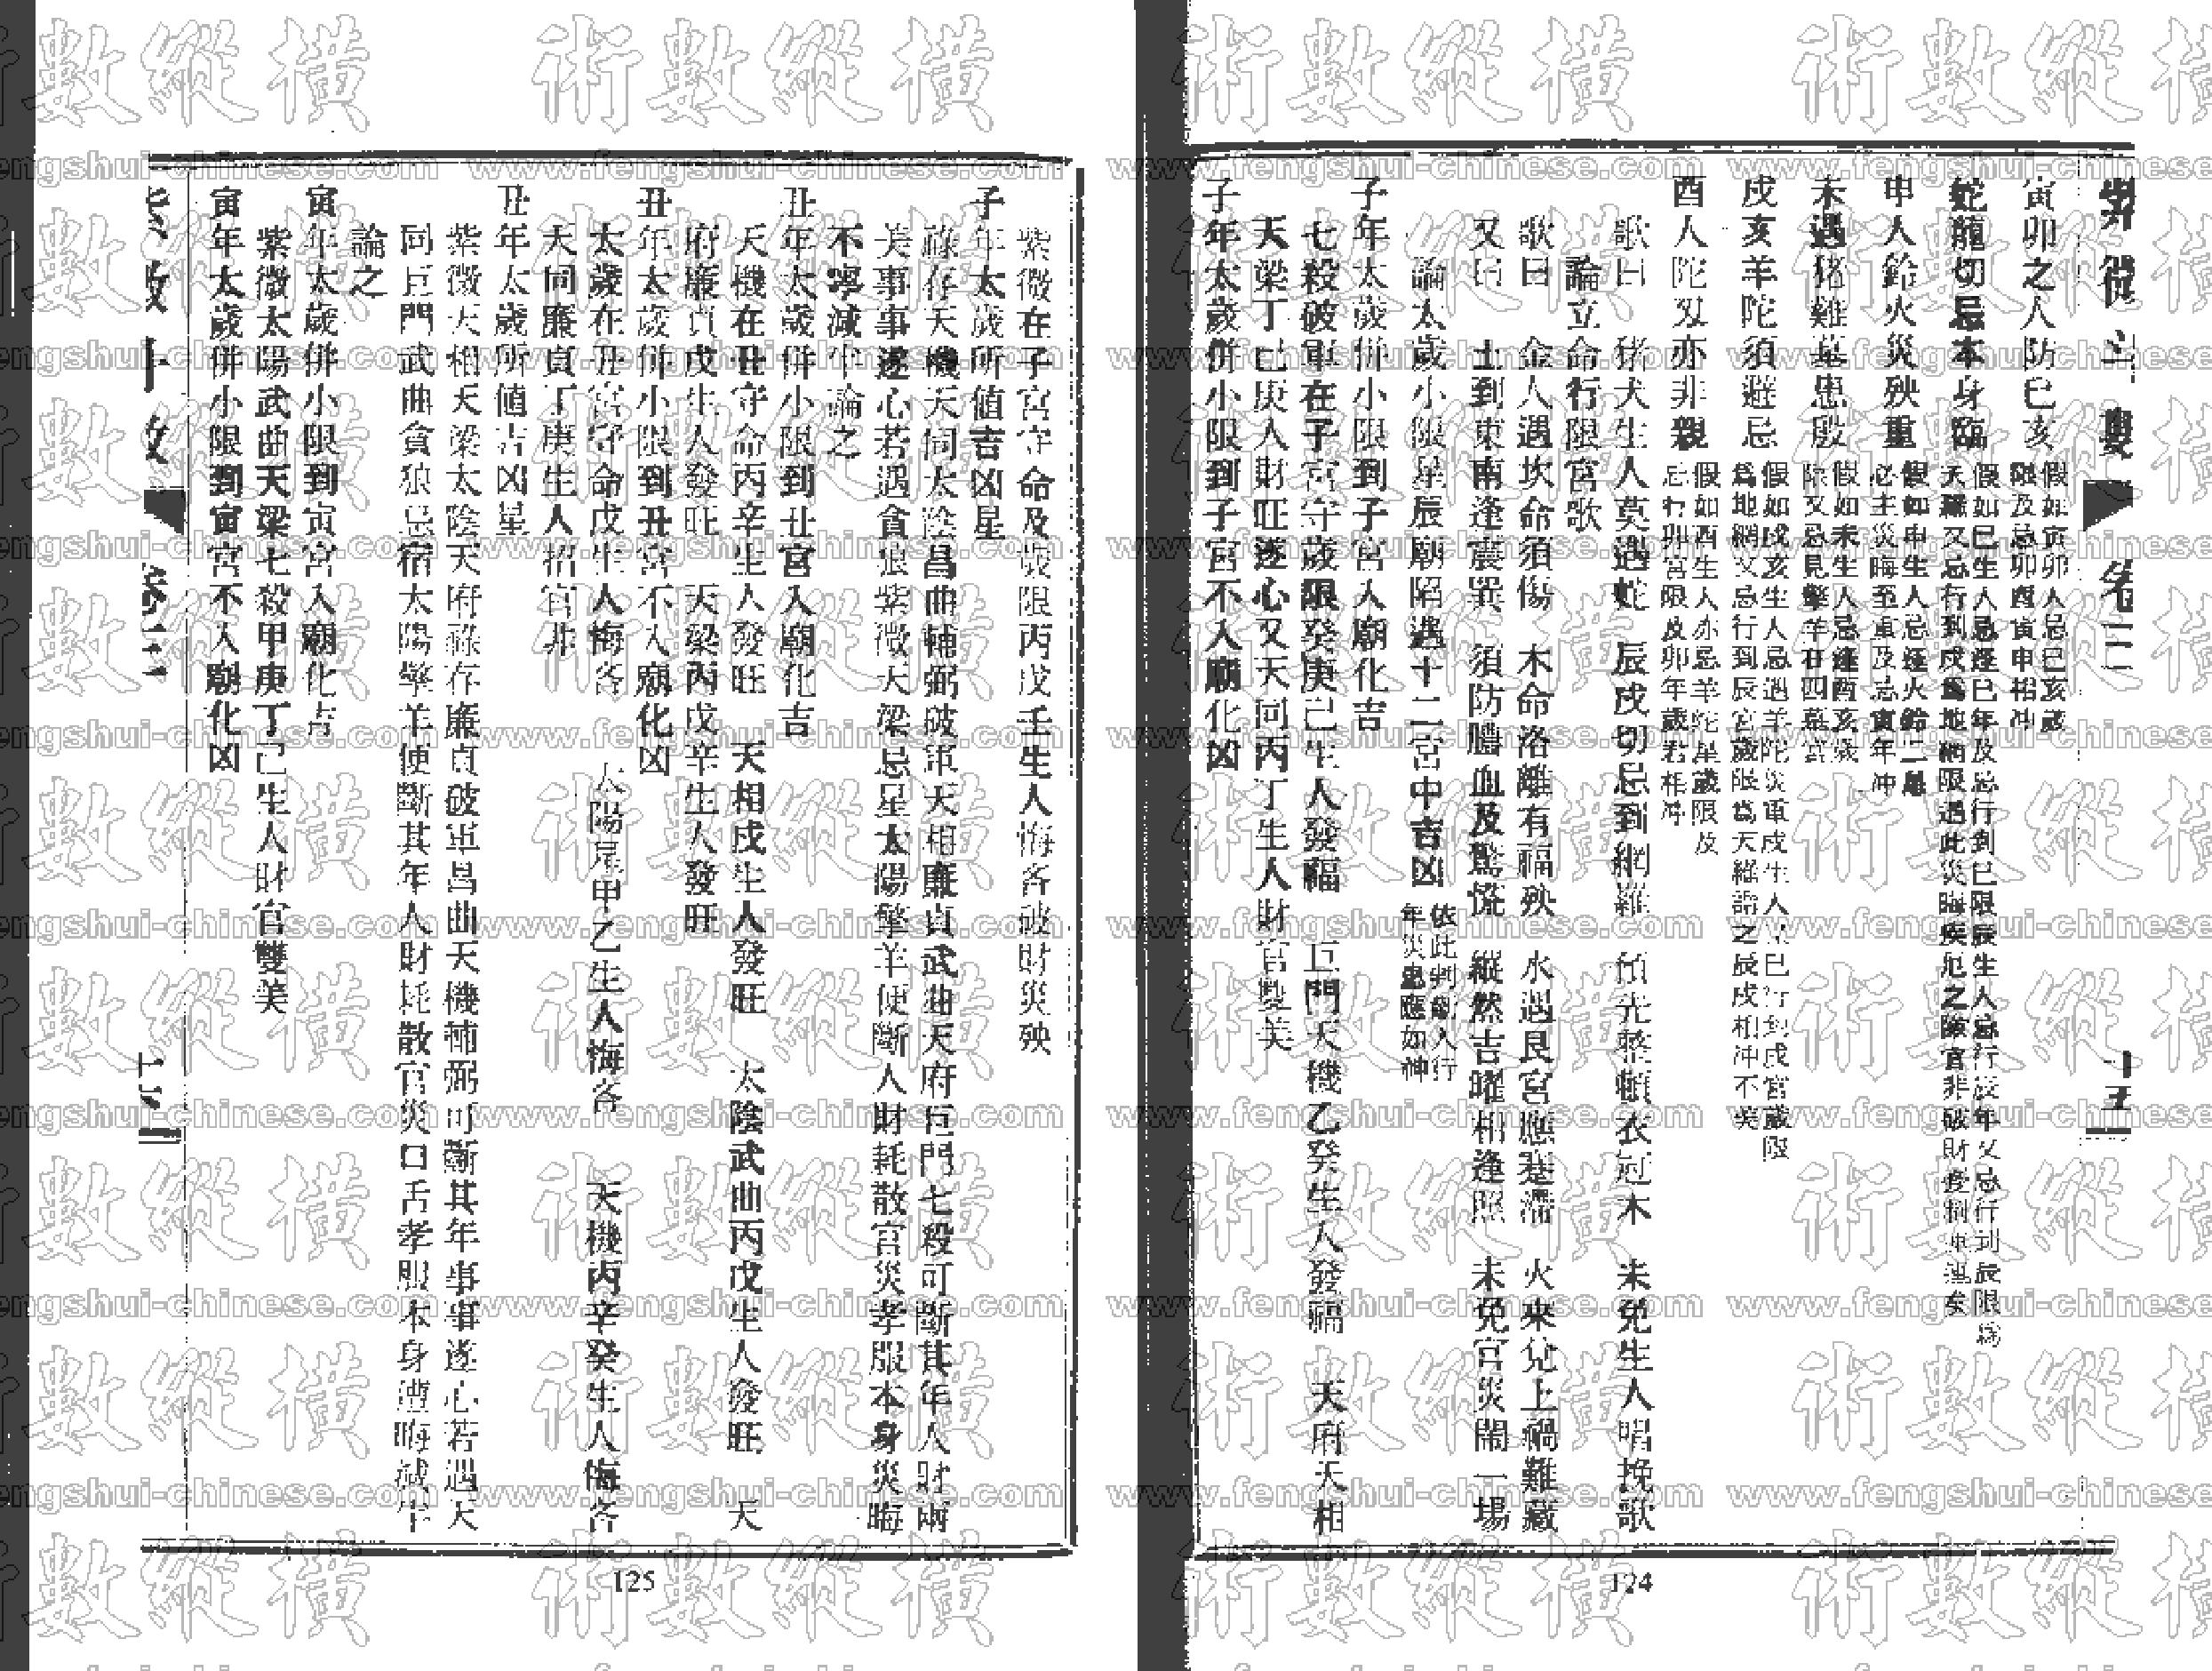 紫微斗數 卷三 十五
寅卯之人防巳亥 假如寅卯人忌巳亥歲
限及忌卯酉寅申相冲
蛇龍切忌本身臨 假如巳生人忌逢巳年及忌行到巳限辰生人忌行辰年又忌行到辰限為
天羅又忌行到戌為地網限遇此災晦疾厄之
申人鈴火災殃重 假如申生人忌逢火鈴二星
必主災晦至重及忌寅年冲
未遇猪雞墓患殷 假如未生人忌逢酉亥歲
限又忌見擎羊在四墓宮
戌亥羊陀須避忌 假如戌亥生人忌遇羊陀災重戌生人
為地網又忌行到辰宮歲限為天羅謂之辰戌相冲不美
酉人陀刄亦非親 假如酉生人亦忌羊陀星歲限及
忌行卯宮限及卯年歲君相冲
歌曰 猪犬生人莫遇蛇 辰戌切忌到網羅 預先整頓衣冠木 未免生人唱挽歌
論立命行限宮歌
歌曰 金人遇坎命須傷 木命洛離有福殃 水遇艮宮應蹇滯 火來兌上禍難藏
又曰 土到東南逢震巽 須防膿血及驚慌 縱然吉曜相逢照 未免官災鬧一場
論太歲小限星辰廟陷遇十二宮中吉凶 依此判斷人行
年災患應如神
子年太歲併小限到子宮入廟化吉
七殺破軍在子宮守歲限癸庚己生人發福 巨門天機乙癸生人發福 天府天相
天梁丁己庚人財旺遂心又天同丙丁生人財官雙美
子年太歲併小限到子宮不入廟化凶
124
紫微在子宮守命及歲限丙戊壬生人悔吝破財災殃
子年太歲所值吉凶星
祿存天機天同太陰昌曲輔弼破軍天相廉貞武曲天府巨門七殺可斷其年人財兩
美事事遂心若遇貪狼紫微天梁忌星太陽擎羊便斷人財耗散官災孝服本身災晦
不寧減半論之
丑年太歲併小限到丑宮入廟化吉
天機在丑守命丙辛生人發旺 天相戊生人發旺 太陰武曲丙戊生人發旺 天
府廉貞戊生人發旺 天梁丙戊辛生人發旺
丑年太歲併小限到丑宮不入廟化凶
太歲在丑宮守命戊生人悔吝 太陽星甲乙生人悔吝 天機丙辛癸生人悔吝
天同廉貞丁庚生人招官非
丑年太歲所值吉凶星
紫微天相天梁太陰天府祿存廉貞破軍昌曲天機輔弼可斷其年事事遂心若遇天
同巨門武曲貪狼忌宿太陽擎羊便斷其年人財耗散官災口舌孝服本身遭晦減半
論之
寅年太歲併小限到寅宮入廟化吉
紫微太陽武曲天梁七殺甲庚丁己生人財官雙美
寅年太歲併小限到寅宮不入廟化凶
紫微斗數 卷三
125